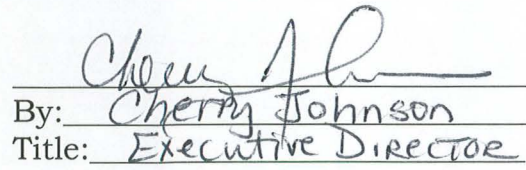 Cherry Johnson
By: Cherry Johnson
Title: Executive Director